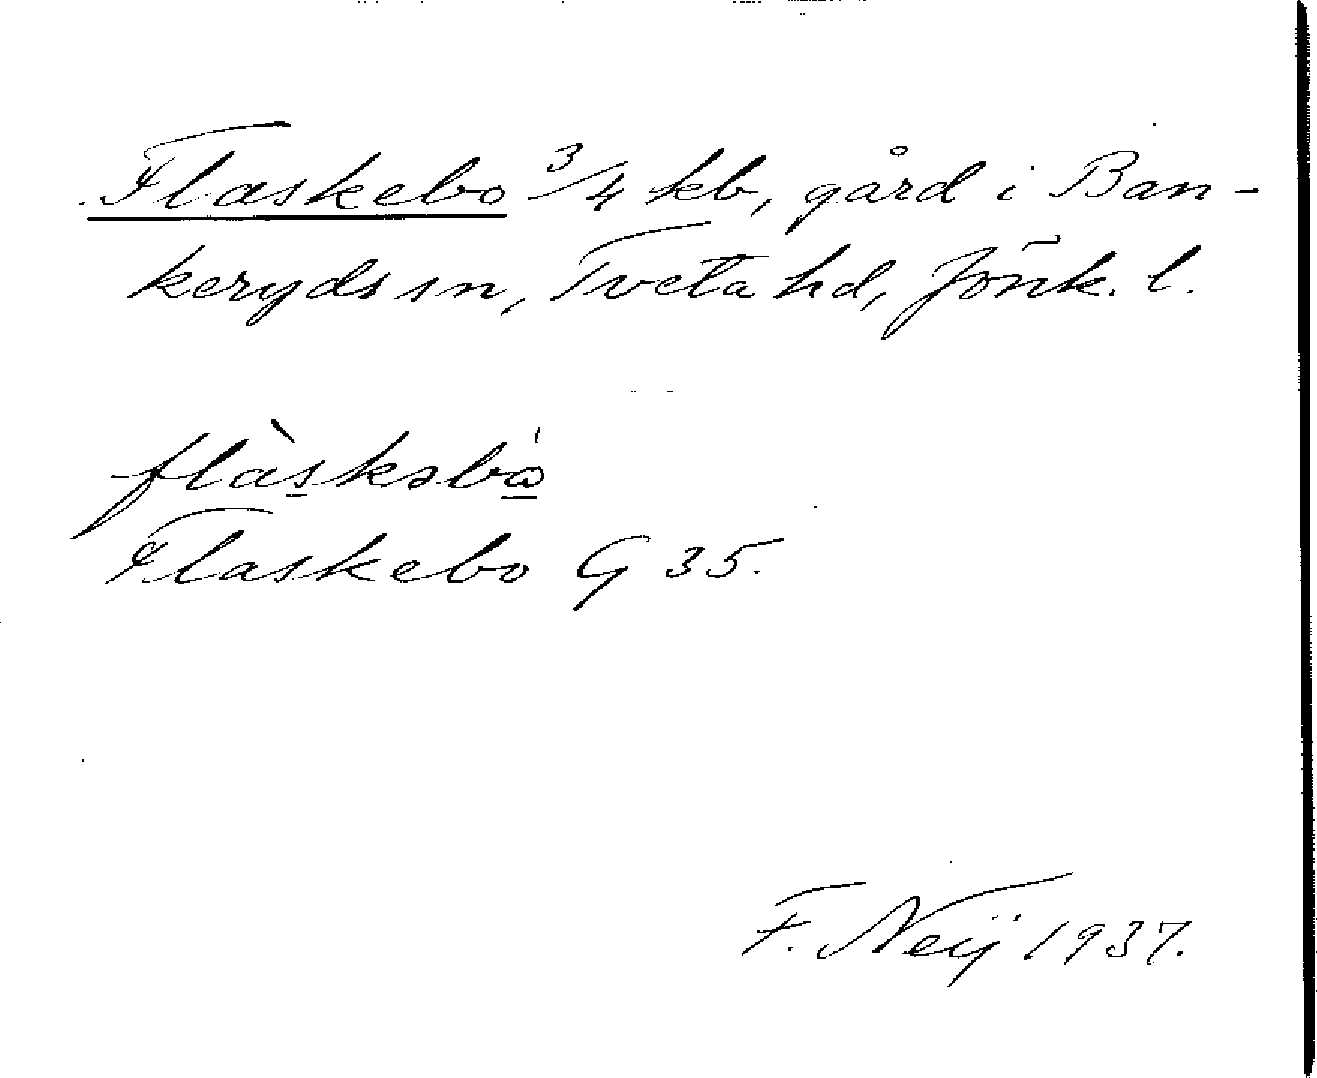 Flaskebo 3/4 kb, gård i Ban-
keryds sn, Tveta hd, Jönk. l.
flàskəbɷ̀
Flaskebo G 35.
F. Neij 1937.